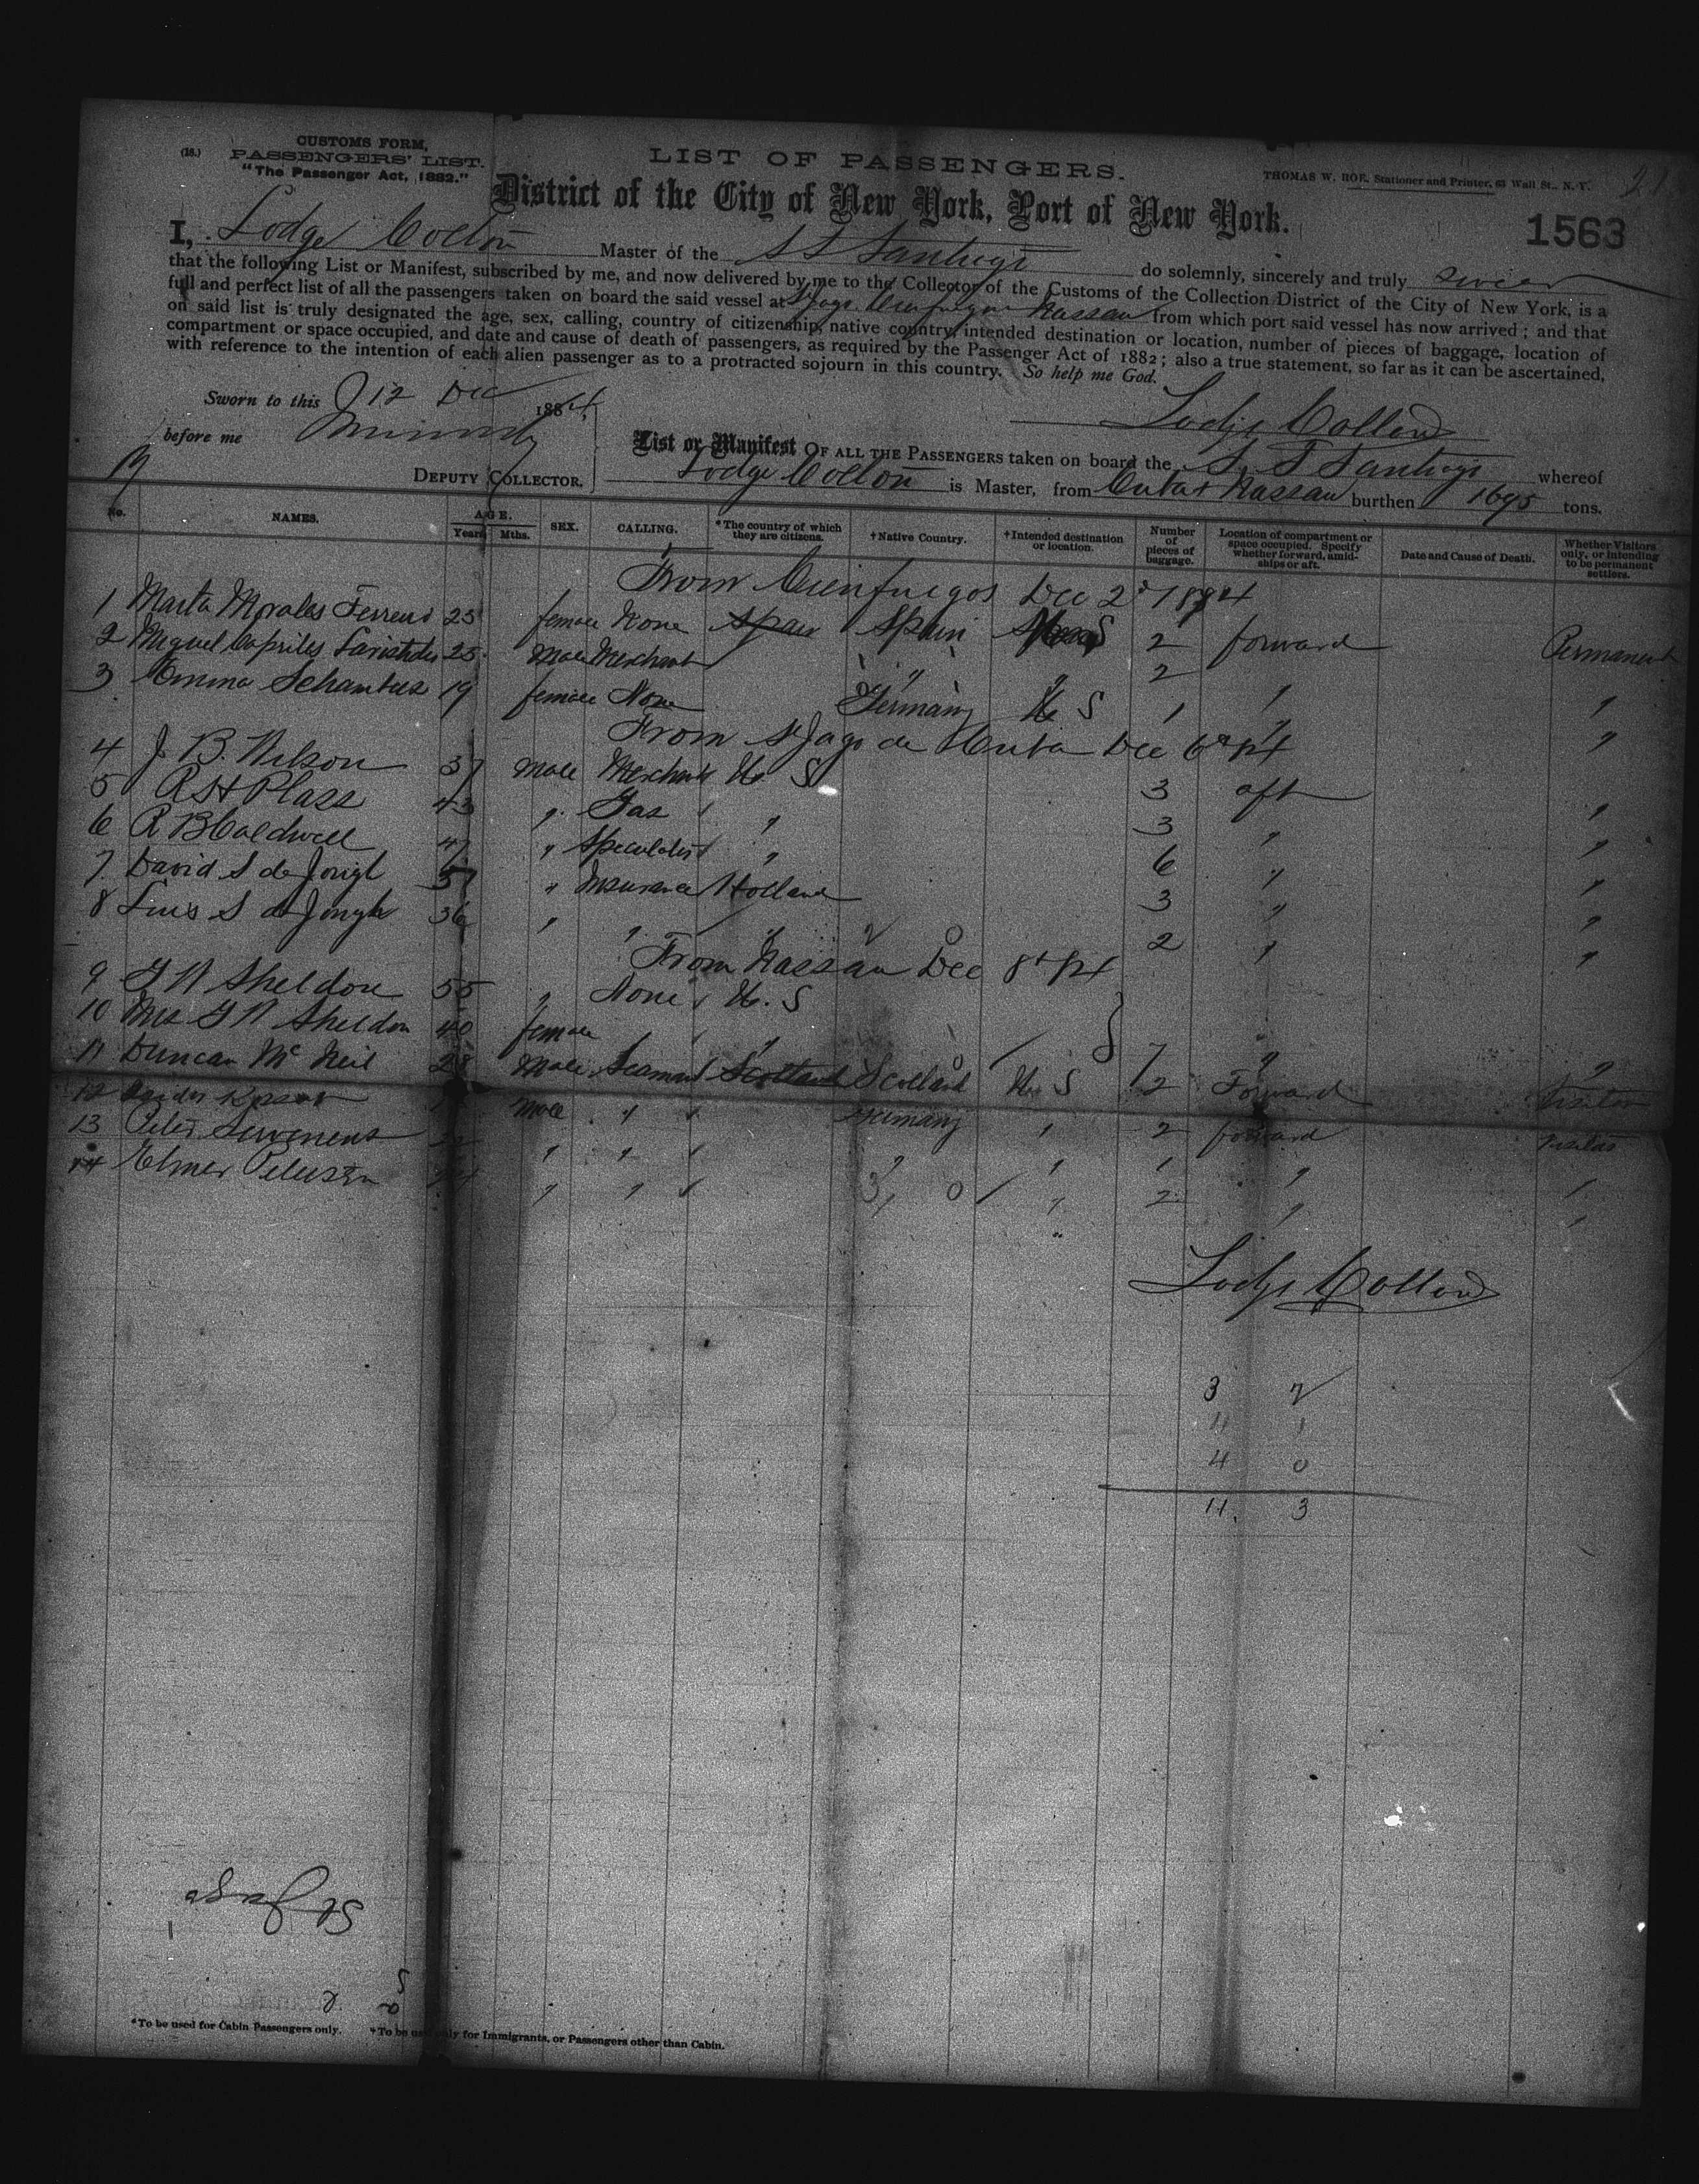 (18.) CUSTOMS FORM,
PASSENGERS' LIST.
"The Passenger Act, 1882."
LIST OF PASSENGERS.
THOMAS W. ROE, Stationer and Printer, 63 Wall St., N. Y.
District of the City of New York, Port of New York.
1563
I, Lodge Colton Master of the SS Santiago do solemnly, sincerely and truly swear
that the following List or Manifest, subscribed by me, and now delivered by me to the Collector of the Customs of the Collection District of the City of New York, is a
full and perfect list of all the passengers taken on board the said vessel at St Jago Cienfuegos Nassau from which port said vessel has now arrived; and that
on said list is truly designated the age, sex, calling, country of citizenship, native country, intended destination or location, number of pieces of baggage, location of
compartment or space occupied, and date and cause of death of passengers, as required by the Passenger Act of 1882; also a true statement, so far as it can be ascertained,
with reference to the intention of each alien passenger as to a protracted sojourn in this country. So help me God.
Sworn to this 12 Dec 1884
Lodge Colton
before me
DEPUTY COLLECTOR.
List or Manifest OF ALL THE PASSENGERS taken on board the S. S Santiago whereof
Lodge Colton is Master, from Cuba & Nassau burthen 1695 tons.
No. NAMES. AGE. Years Mths. SEX. CALLING. *The country of which they are citizens. †Native Country. †Intended destination or location. Number of pieces of baggage. Location of compartment or space occupied. Specify whether forward, amidships or aft. Date and Cause of Death. Whether Visitors only, or intending to be permanent settlers.
From Cienfuegos Dec 2d 1884
1 Marta Morales Ferreus 25 female None Spain Spain 2 forward Permanent
2 Miguel Capriles 25 Male Merchant " " 2 " "
3 Emma Schantus 19 female None Germany U S 1 " "
From St Jago de Cuba Dec 6th 84
4 J. B. Nelson 37 Male Merchant U S 3 aft "
5 R H Plass 43 " Gas " 3 " "
6 R B Caldwell 47 " Speculator " 6 " "
7. David S de Jongh 57 " Insurance Holland 3 " "
8 Luis S de Jongh 36 " " " 2 " "
From Nassau Dec 8th 84
9 G W Sheldon 55 " None U. S
10 Mrs G W Sheldon 40 female " " 7 " "
11 Duncan Mc Neil 28 Male Seaman Scotland Scotland U S 2 Forward Visitor
12 Male " Germany " 2 forward
13 Peter " " " " 1 " "
14 Elmer Peterson 24 " " " " 2 " "
Lodge Colton
3 2
4 0
11 3
St Jago
*To be used for Cabin Passengers only. †To be used only for Immigrants, or Passengers other than Cabin.